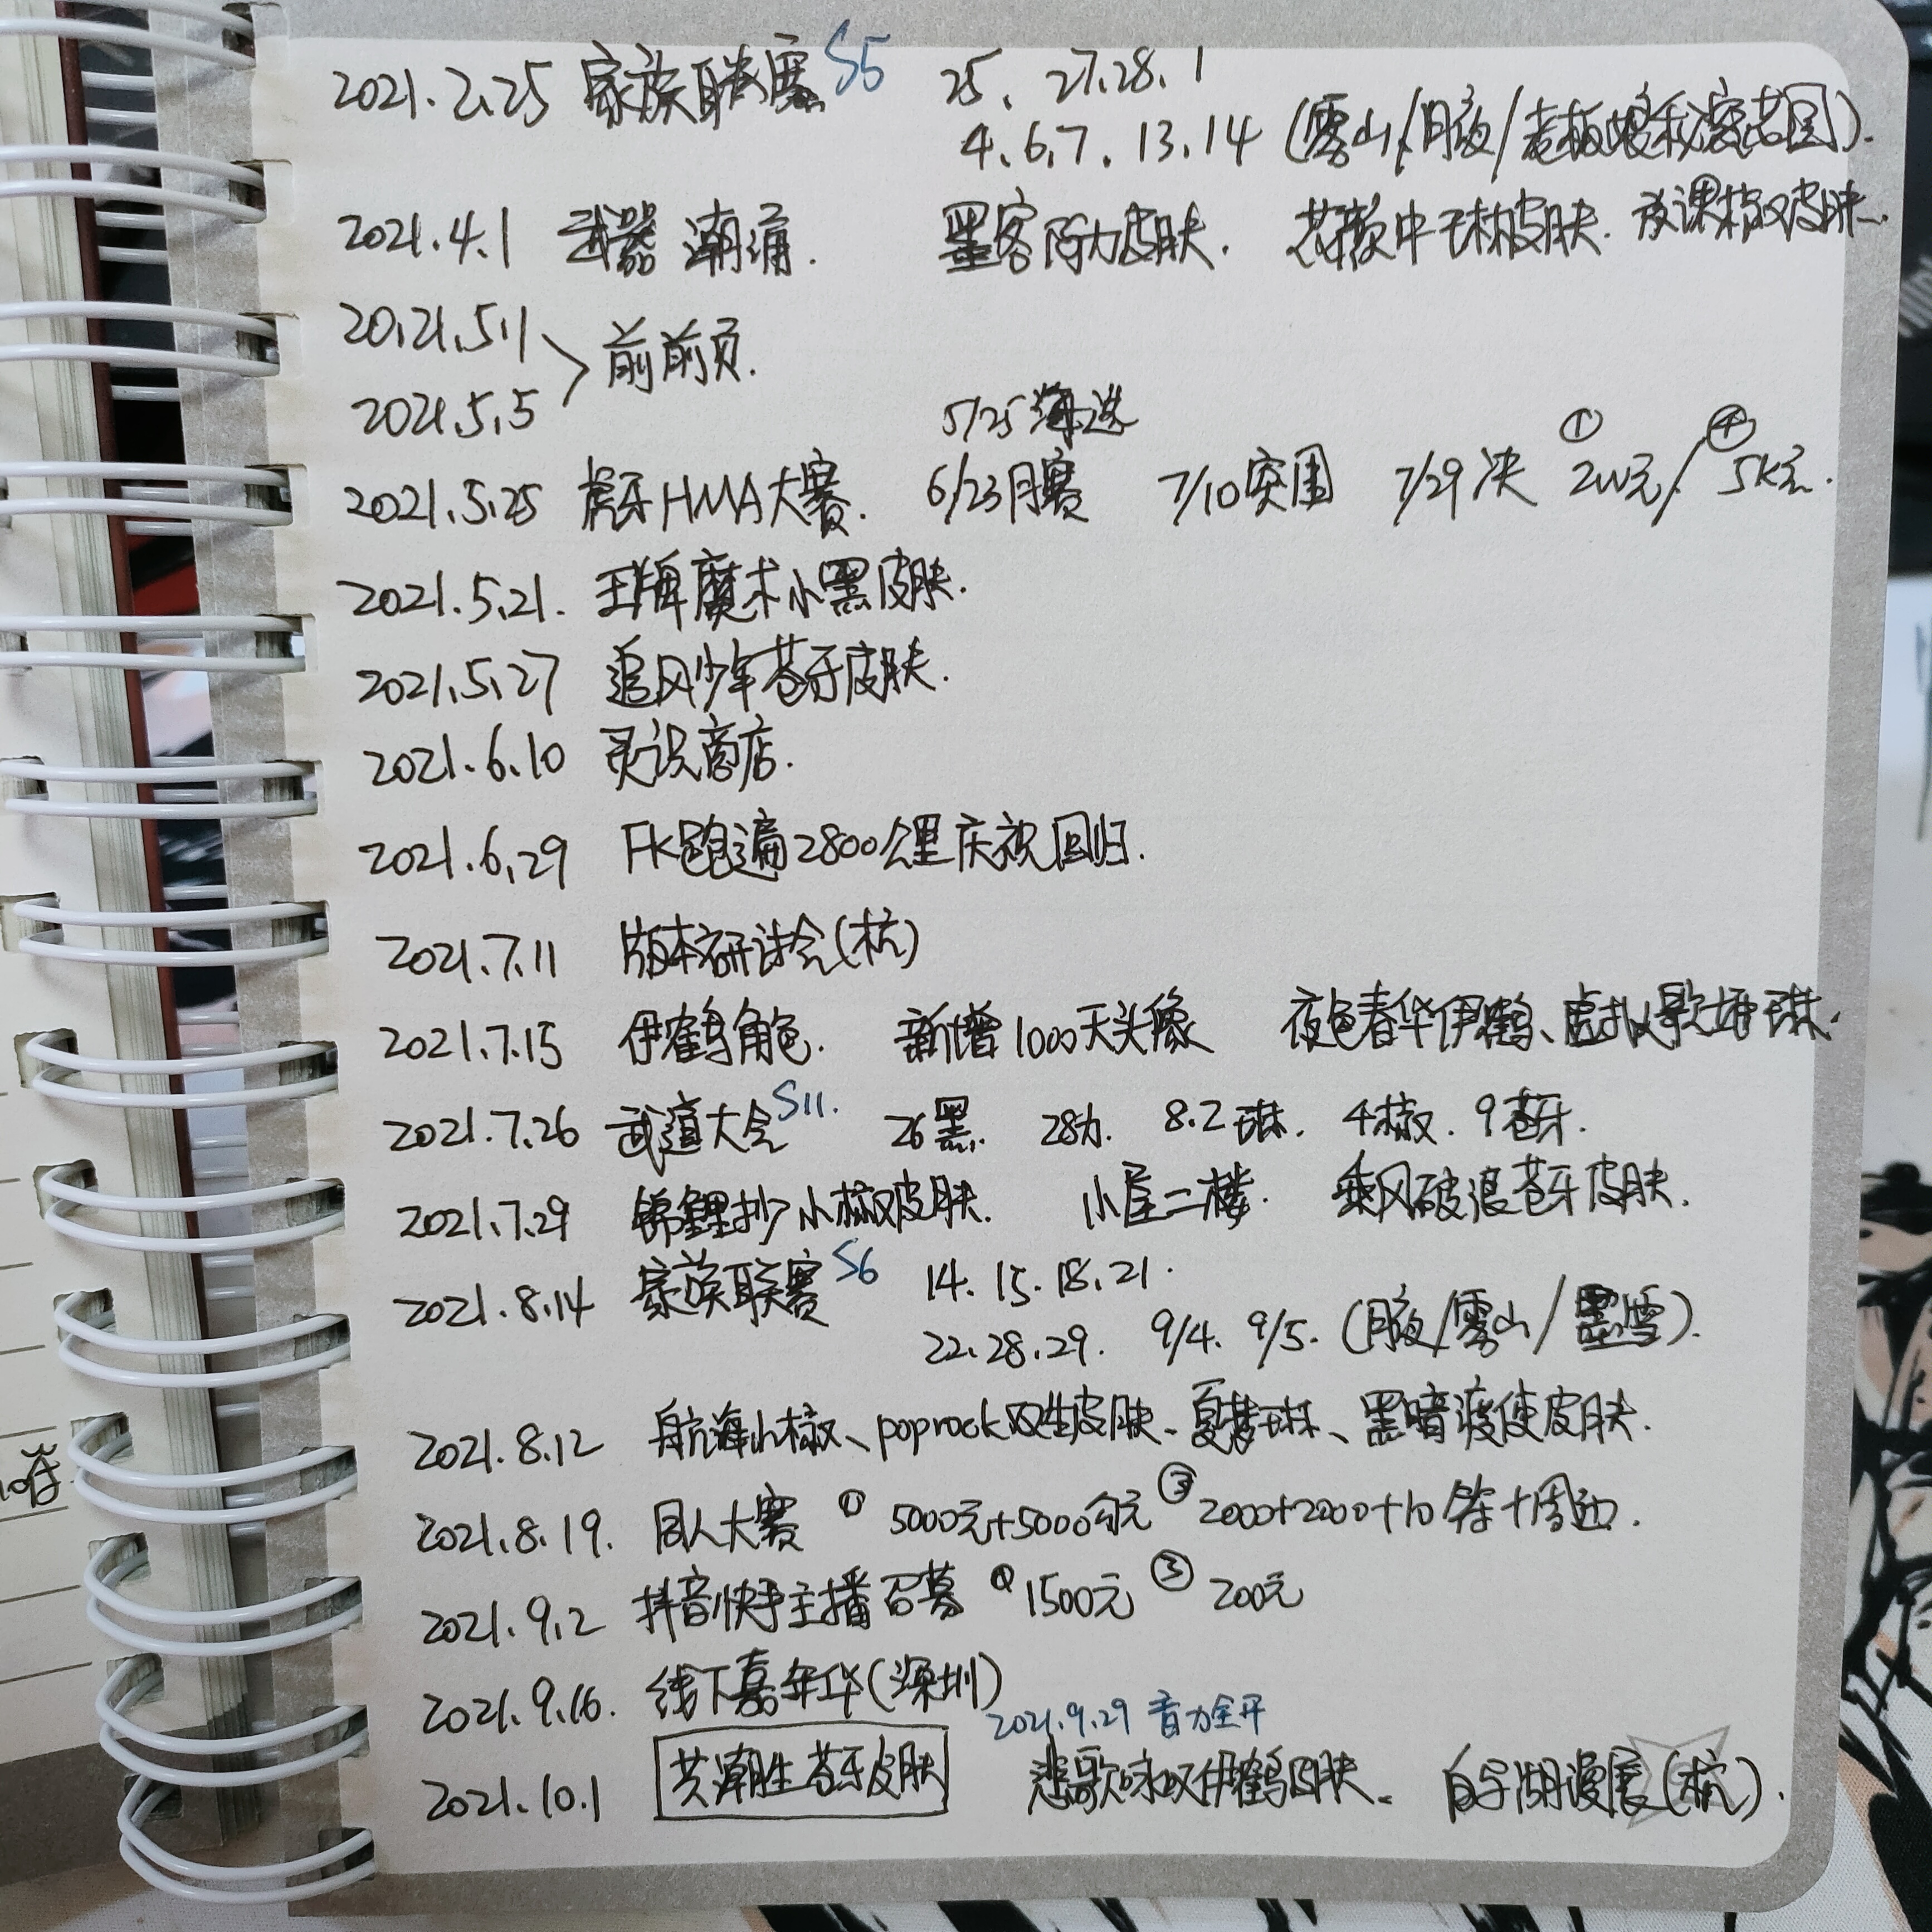 2021.2.25 家族联赛 S5 25、27.28.1
4.6.7.13.14 (雪山/月夜/老板娘秘密花园).
2021.4.1 武器 潮涌. 黑客阿力皮肤. 花颜中琳皮肤. 放课椒皮肤.
2021.5.1
2021.5.5 > 前前页.
5/25海选
2021.5.25 虎牙HMA大赛. 6/23月赛 7/10突围 7/29决 ①2W元/④5K元.
2021.5.21. 王牌魔术小黑皮肤.
2021.5.27 追风少年苍牙皮肤.
2021.6.10 灵识商店.
2021.6.29 FK跑遍2800公里庆祝回归.
2021.7.11 版本研讨会(杭)
2021.7.15 伊鹤角色. 新增1000天头像 夜色春华伊鹤、虚拟歌姬琳.
2021.7.26 武道大会S11. 26黑. 28力. 8.2琳. 4椒. 9苍牙.
2021.7.29 锦鲤抄小椒皮肤. 小屋二楼. 乘风破浪苍牙皮肤.
2021.8.14 家族联赛S6 14.15.18.21.
22.28.29. 9/4. 9/5. (月夜/雪山/墨雪).
2021.8.12 航海小椒、poprock双生皮肤、夏梦琳、黑暗渡使皮肤.
2021.8.19. 同人大赛 ① 5000元+5000勾元 ③ 2000+2000+10等+周边.
2021.9.2 抖音快手主播召募 ①1500元 ③ 200元
2021.9.16. 线下嘉年华(深圳)
2021.9.29 音力全开
2021.10.1 共潮生苍牙皮肤 悲歌咏叹伊鹤皮肤、 白马湖漫展(杭).